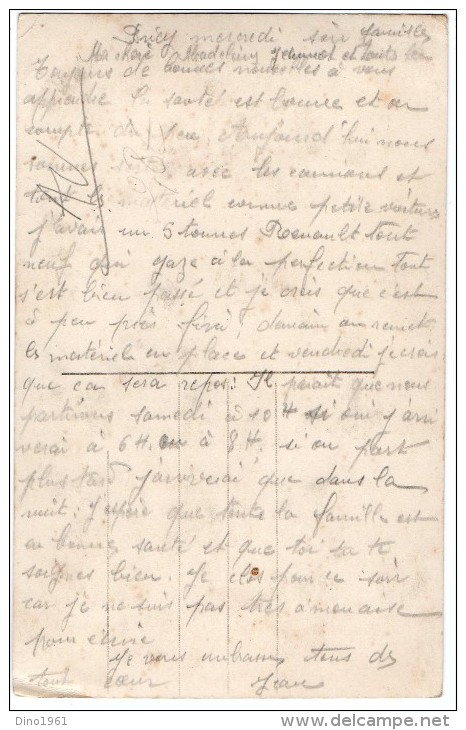 mercredi soir famille
Ma chère Madeleine Jeannot et toute la
Toujours de bonnes nouvelles à vous
apprendre la santé est bonne et on
compte du peu. Aujourd'hui nous
sommes avec les camions et
tout le matériel comme petite voiture
j'avais un 5 tonnes Renault tout
neuf qui gaze à la perfection tout
s'est bien passé et je crois que c'est
à peu près fini, demain on remet
le matériel en place et vendredi je crois
que ca sera repos. Il parait que nous
partirons samedi à 10 H si oui j'arri
verai à 6 H. ou à 8 H. si on part
plus tard j'arriverai que dans la
nuit: J'espère que toute la famille est
en bonne santé et que toi tu te
soignes bien Je clos pour ce soir
car je ne suis pas très à mon aise
pour écrire
Je vous embrasse tous de
tout cœur Jean
Dino1961